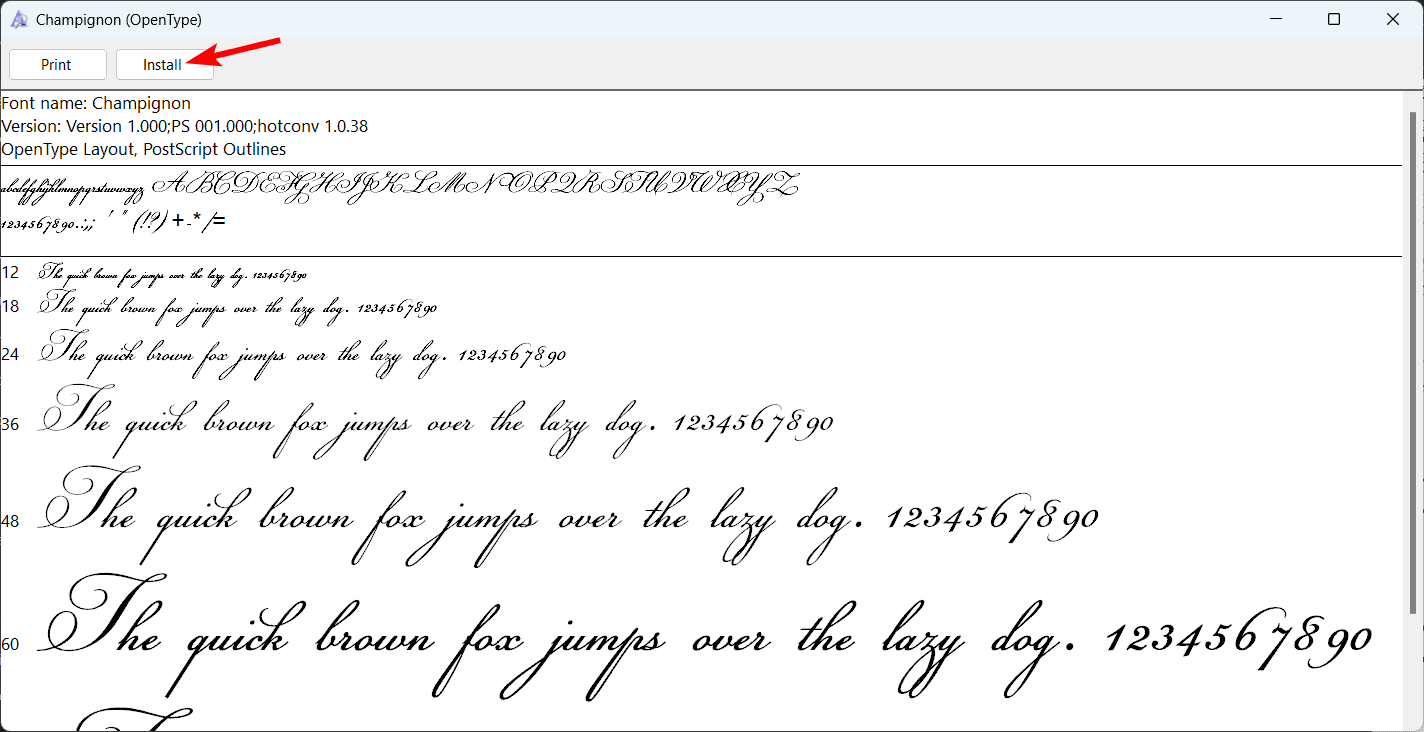 Champignon (OpenType)
Print Install
Font name: Champignon
Version: Version 1.000;PS 001.000;hotconv 1.0.38
OpenType Layout, PostScript Outlines
abcdefghijklmnopqrstuvwxyz ABCDEFGHIJKLMNOPQRSTUVWXYZ
1234567890.:,; ' " (!?) + - * / =
12 The quick brown fox jumps over the lazy dog. 1234567890
18 The quick brown fox jumps over the lazy dog. 1234567890
24 The quick brown fox jumps over the lazy dog. 1234567890
36 The quick brown fox jumps over the lazy dog. 1234567890
48 The quick brown fox jumps over the lazy dog. 1234567890
60 The quick brown fox jumps over the lazy dog. 1234567890